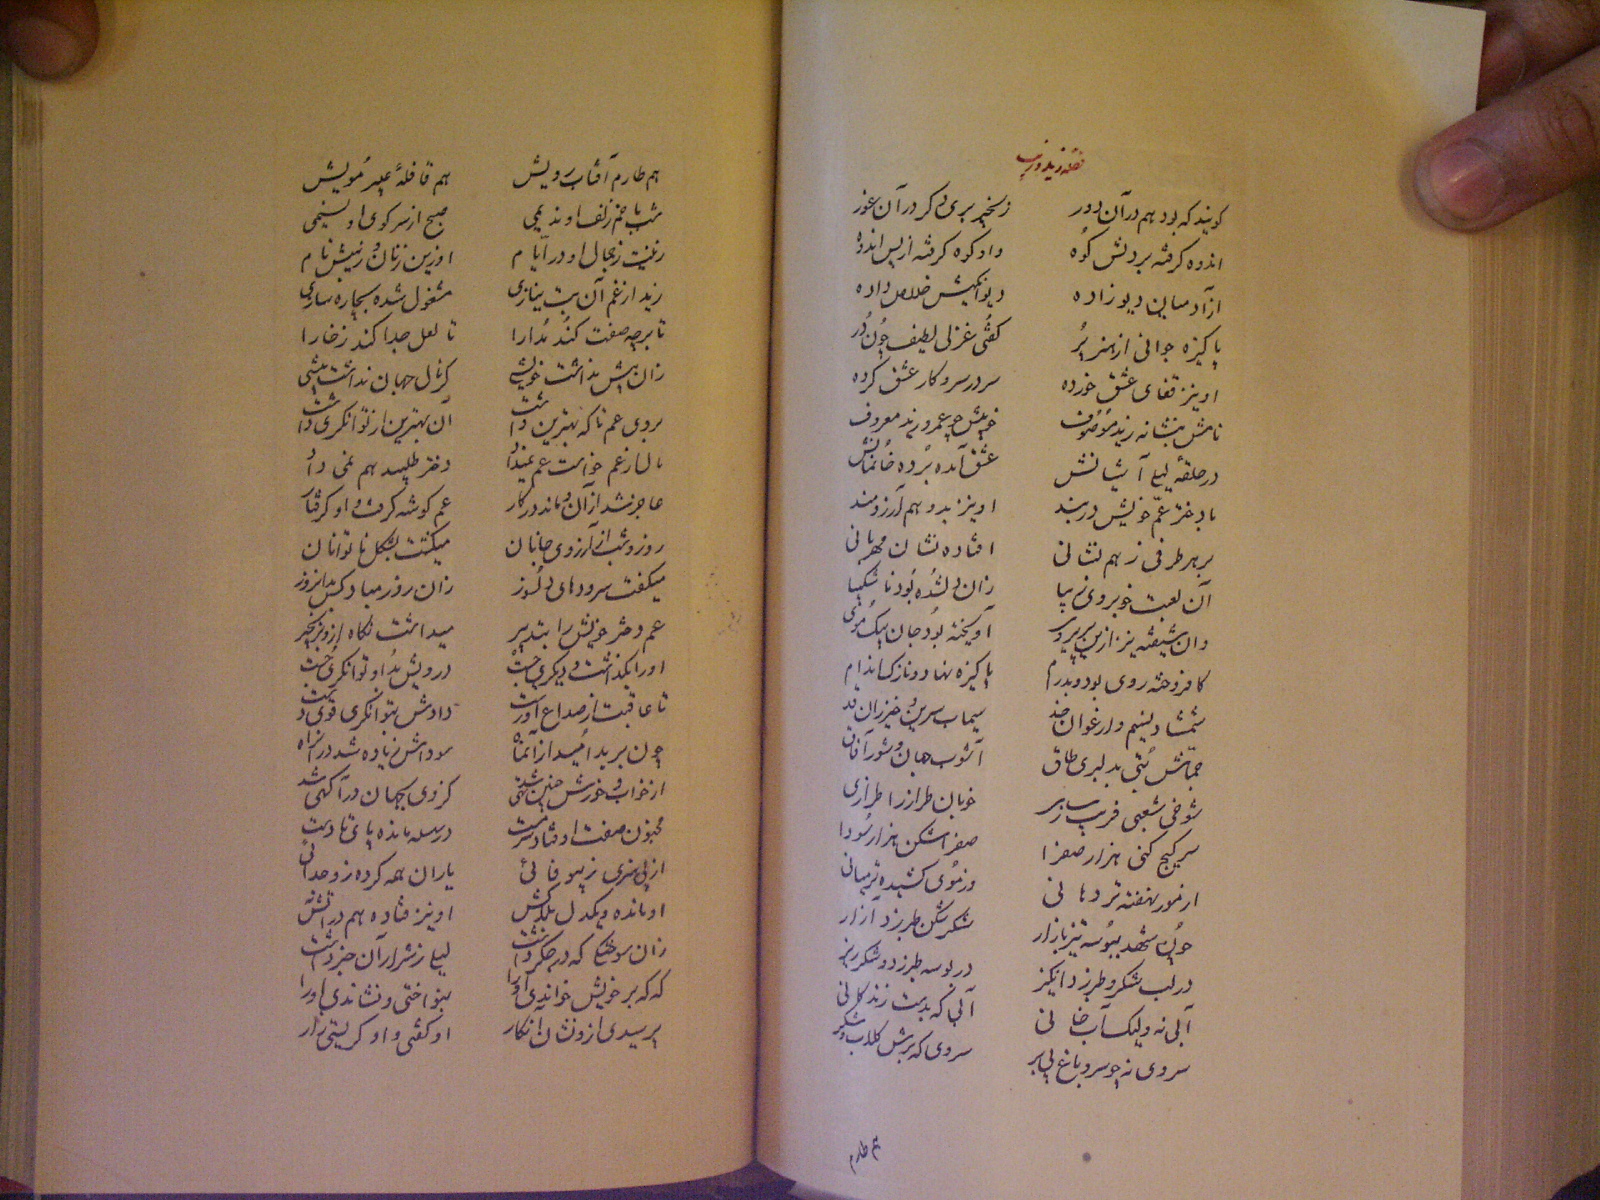 قصه زید و زینب
گویند که بود هم در آن دور زنجیر بری دگر در آن غور
اندوه گرفته بر دلش کوه واو کوه گرفته از پس اندوه
از آدمیان دیو زاده دیوانگیش خلاص داده
پاکیزه جوانی از هنر پر گفتی غزلی لطیف چون در
او نیز قفای عشق خورده سر در سر و کار عشق کرده
نامش بنشانه زید موصوف خویش چو عمرو زید معروف
در حلقه لیلی آشیانش عشق آمده برده خانمانش
با دختر عم خویش در بند او نیز بدو هم آرزومند
بر هر طرفی ز هم نشانی افتاده نشان مهربانی
آن لعبت خوبروی زیبا زان دلشده بود ناشکیبا
وان شیفته نیز از این پریروی آویخته بود جان بیک موی
کافروخته روی بود و پدرام پاکیزه نهاد و نازک اندام
شمشاد نسیم و ارغوان خد سیماب سرین و خیزران قد
جماش بتی بدلبری طاق آشوب جهان و شور آفاق
شوخی شغبی فریب سازی خوبان طراز را طرازی
سرکیج کنی هزار صفرا صفرا شکن هزار سودا
از مور نهفته تر دهانی وز موی کشیده تر میانی
چون شهد ببوسه تیز بازار شکر شکن طبرزد آزار
در لب شکر و طبرزد انگیز در بوسه طبرزد و شکر ریز
آبی نه ولیک آب خانی آبی که بدست زندگانی
سروی نه چو سرو باغ بی بر سروی که برش گلاب و شکر
هم طارم
هم طارم آفتاب رویش هم قافله عبیر مویش
شب با خم زلف او ندیمی صبح از سر کوی او نسیمی
زینت ز جمال او در ایام او زین زنان و زینبش نام
زید از غم آن بت نیازی مشغول شده بچاره سازی
تا برچه صفت کند مدارا تا لعل جدا کند ز خارا
زان بیش نداشت خویشی کز مال جهان نداشت بیشی
بردی عم ناکه بهترین داشت آن بهترین از توانگری داشت
مالار غم خواست عم نمیداد دختر طلبید هم نمی داد
عاجز شد از آن و ماند در کار عم گوشه گرفت و او گرفتار
روز و شب از آرزوی جانان میگشت بشکل ناتوانان
میگفت سرودهای دلسوز زان روز مبادکس بدانروز
عم دختر خویش را بتدبیر میداشت نگاه از او بزنجیر
او را بگذاشت و دیگری جست درویش بد او توانگری جست
تا عاقبت از صداع آوردست دادش بتوانگری قوی دست
چون برید امید از آن ماه سوداش زیاده شد در آن راه
از خواب و خورش چنین تهی شد کز وی بجهان در آگهی شد
مجنون صفت اوفتاد سرمست در سلسله مانده پای تا دست
از بی هنری ز بیوفائی یاران همه کرده زو جدائی
او مانده و یکدل بلاکش او نیز فتاده هم در آتش
زان سوختگی که در جگر داشت لیلی ز شرار آن خبر داشت
گه گه بر خویش خواندی او را بنواختی و نشاندی او را
پرسیدی از او نشان آنکار او گفتی و او گریستی زار